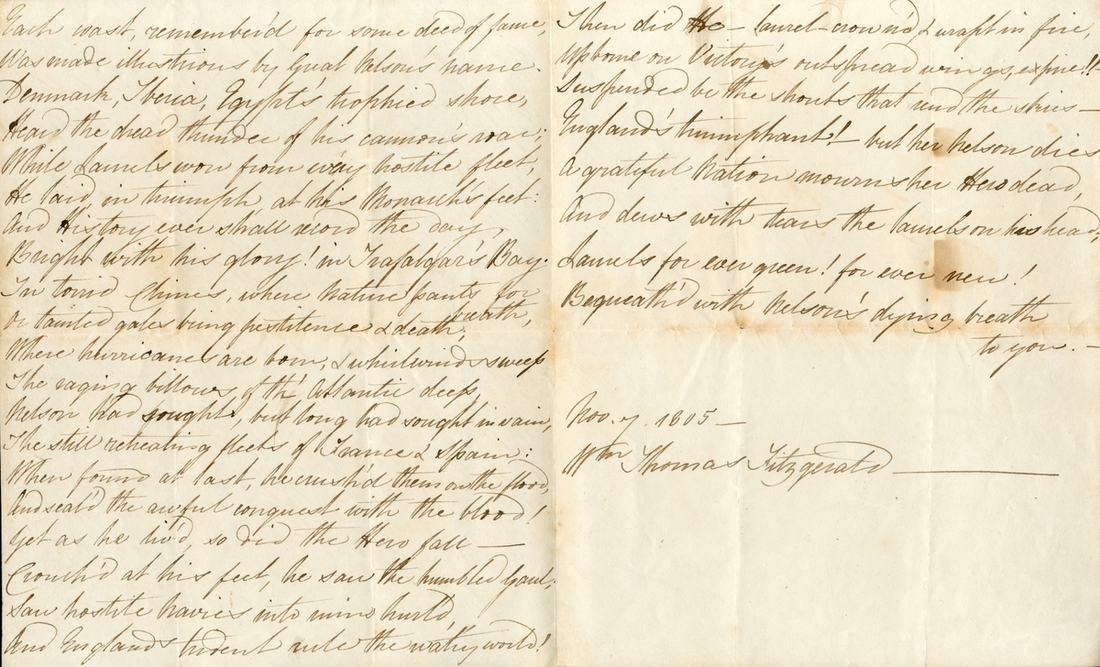 Each coast, remember'd for some deed of fame,
Was made illustrious by Great Nelson's name.
Denmark, Iberia, Egypt's trophied shore,
Heard the dread thunder of his cannon's roar;
While Laurels won from every hostile fleet,
He laid, in triumph, at his Monarch's feet:
And History ever shall record the day,
Bright with his glory! in Trafalgar's Bay.
In torrid Climes, where Nature pants for
breath,
Or tainted gales bring pestilence & death;
Where hurricanes are born, & whirlwinds sweep
The raging billows, of th' Atlantic deep,
Nelson had sought, but long had sought in vain,
The still retreating fleets of France & Spain:
When found at last, he crush'd them on the flood,
And seal'd the awful conquest with the blood!
Yet as he liv'd, so did the Hero fall —
Crouch'd at his feet, he saw the humbled Gaul;
Saw hostile Navies into ruins hurl'd,
And England's trident rule the watry world!
Then did He — laurel-crown'd & wrapt in fire,
Upborne on Victory's outspread wings, expire!!—
Suspended be the shouts that rend the skies —
England's triumphant! — but her Nelson dies
A grateful Nation mourns her Hero dead,
And dews with tears the laurels on his head;
Laurels for ever green! for ever new!
Bequeath'd with Nelson's dying breath
to you. —
Nov. 7. 1805 —
Wm Thomas Fitzgerald